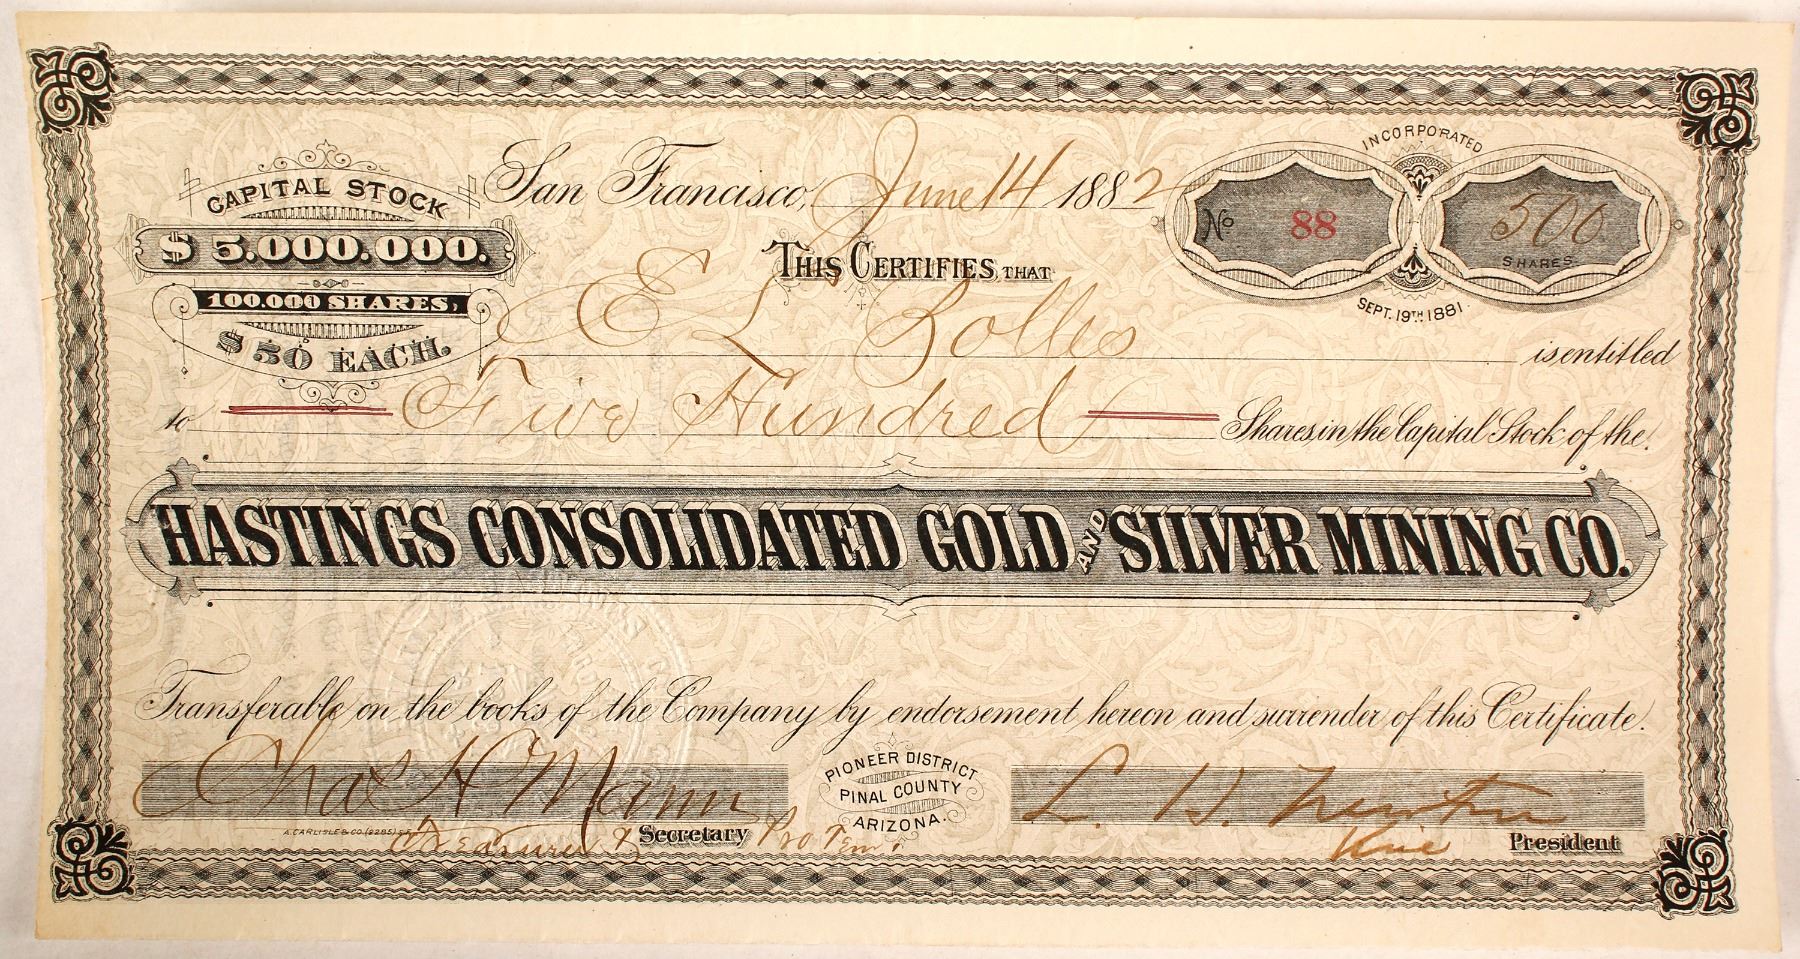 CAPITAL STOCK
$ 5.000.000.
100.000 SHARES,
$ 50 EACH.
San Francisco, June 14 1882
INCORPORATED
No 88
500
SHARES
SEPT. 19TH 1881.
THIS CERTIFIES, THAT
E L Bolles is entitled
to Five Hundred Shares, in the Capital Stock of the
HASTINGS CONSOLIDATED GOLD AND SILVER MINING CO.
Transferable on the books of the Company by endorsement hereon and surrender of this Certificate.
Chas H Mann
PIONEER DISTRICT
PINAL COUNTY
ARIZONA.
L. H. Newton
A. CARLISLE & CO. (9285) S.F.
Treasurer & Secretary Pro Tem.
Vice President